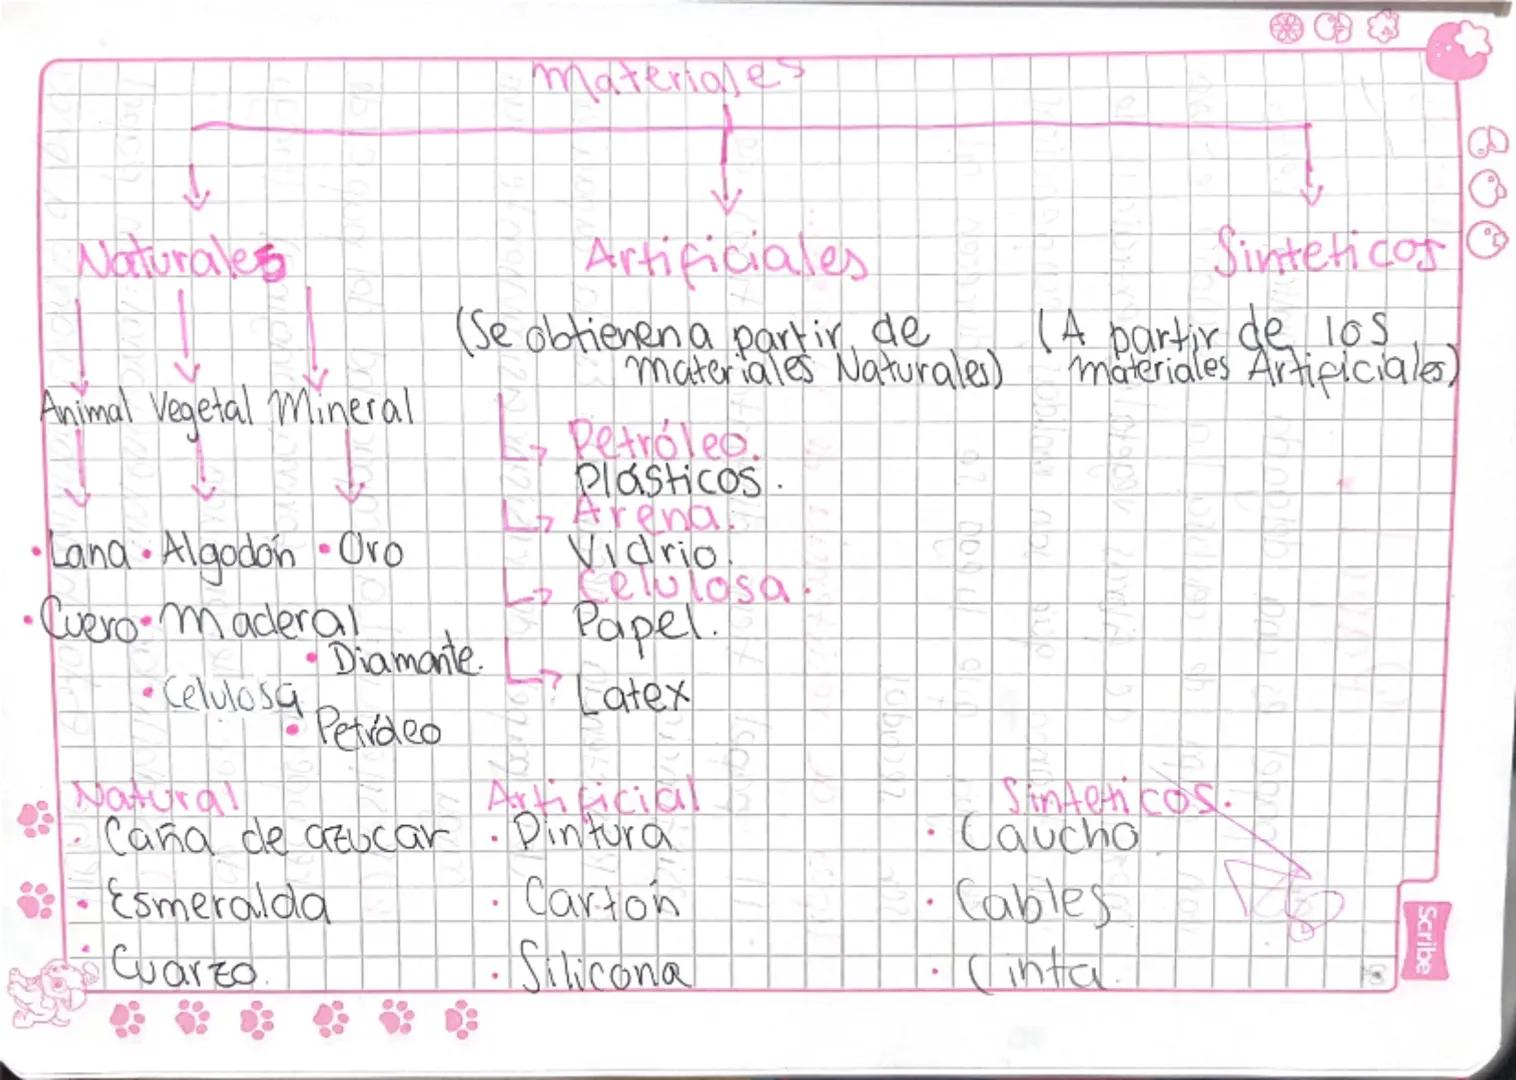 Materiales
Naturales Artificiales Sinteticos
(Se obtienen a partir de
materiales Naturales)
(A partir de los
materiales Artificiales)
Animal Vegetal Mineral
• Lana • Algodón • Oro
• Cuero • Maderal
• Diamante.
• Celulosa
• Petróleo
Petróleo.
Plásticos.
Arena.
Vidrio.
Celulosa.
Papel.
Latex
Natural
• Caña de azucar
• Esmeralda
• Cuarzo.
Artificial
• Pintura
• Cartón
• Silicona
Sinteticos.
• Caucho
• Cables
• Cinta.
Scribe